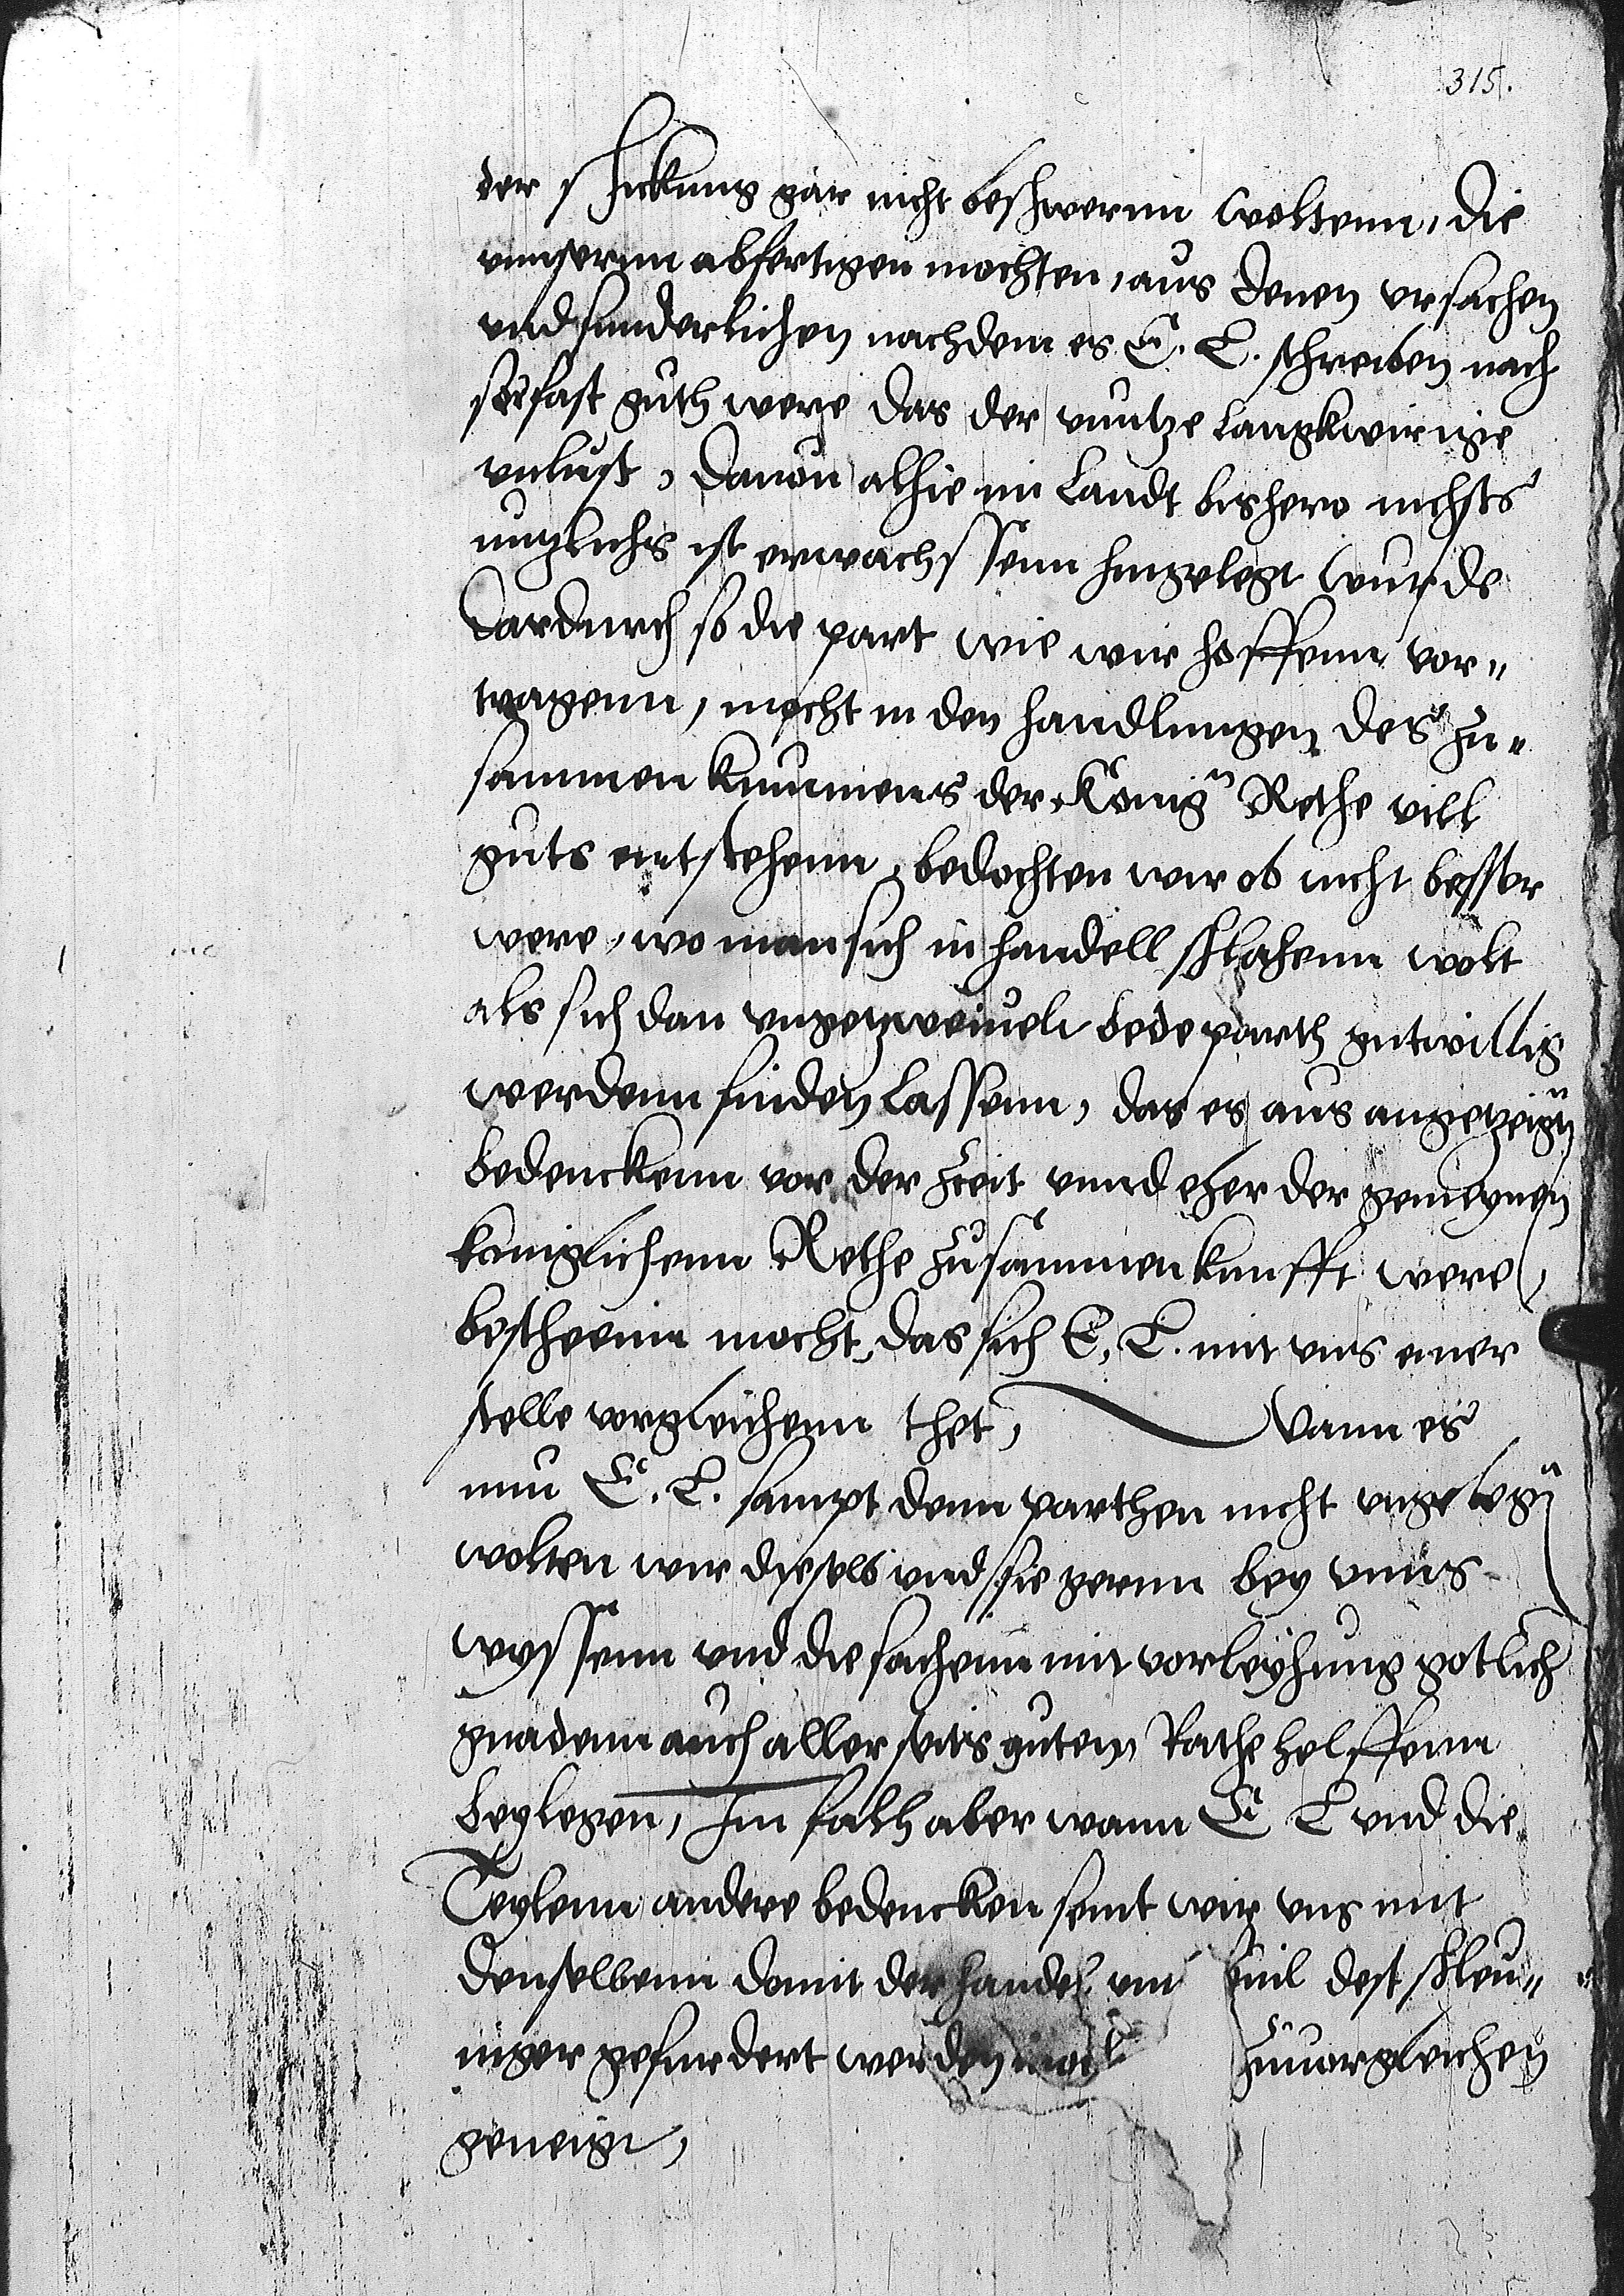 315.
der schickung gar nicht beschwernn woltenn, die
vnnsernn abfertigen mochten, aus denen vrsachen
vnd sunderlichen nachdem es E. L. schreiben nach
seer fast guth were das der vnntze langkwirige
vnlust, dauon alhie im Landt bishero nichsts
nutzlichs ist erwachssenn hingelegt wurde
Dardurch so die part wie wir hoffenn vor„
tragenn, mocht in den handlungen des zu„
sammen kummens der Konign Rethe vill
guts entstehenn, bedochten wir ob nicht besser
were, wo man sich in handell schlahenn wolt
als sich dan vngetzweiuelt bede parth gutwillig
werdenn finden lassenn, das es aus angetzeigtn
bedenckenn vor der Zeit vnnd eher der gemeynen
koniglichenn Rethe zusammenkunfft were,
bescheenn mocht, das sich E. L. mit vns einer
stelle vorgleichenn thet, Wann es
nun E. L. sampt denn parthen nicht vngelegn
wolten wir dieselb vnd sie gernn bey vnns
wyssenn vnd die sachenn mit vorleyhung gotlich
gnadenn auch allerseits gutem Rathe helffenn
beylegen, Im falh aber wann E L vnd die
Teylenn andere bedencken seint wir vns mit
denselbenn domit der handel vm souil dest schleu„
niger gefurdert werden mocht zuuorgleichen
geneigt,